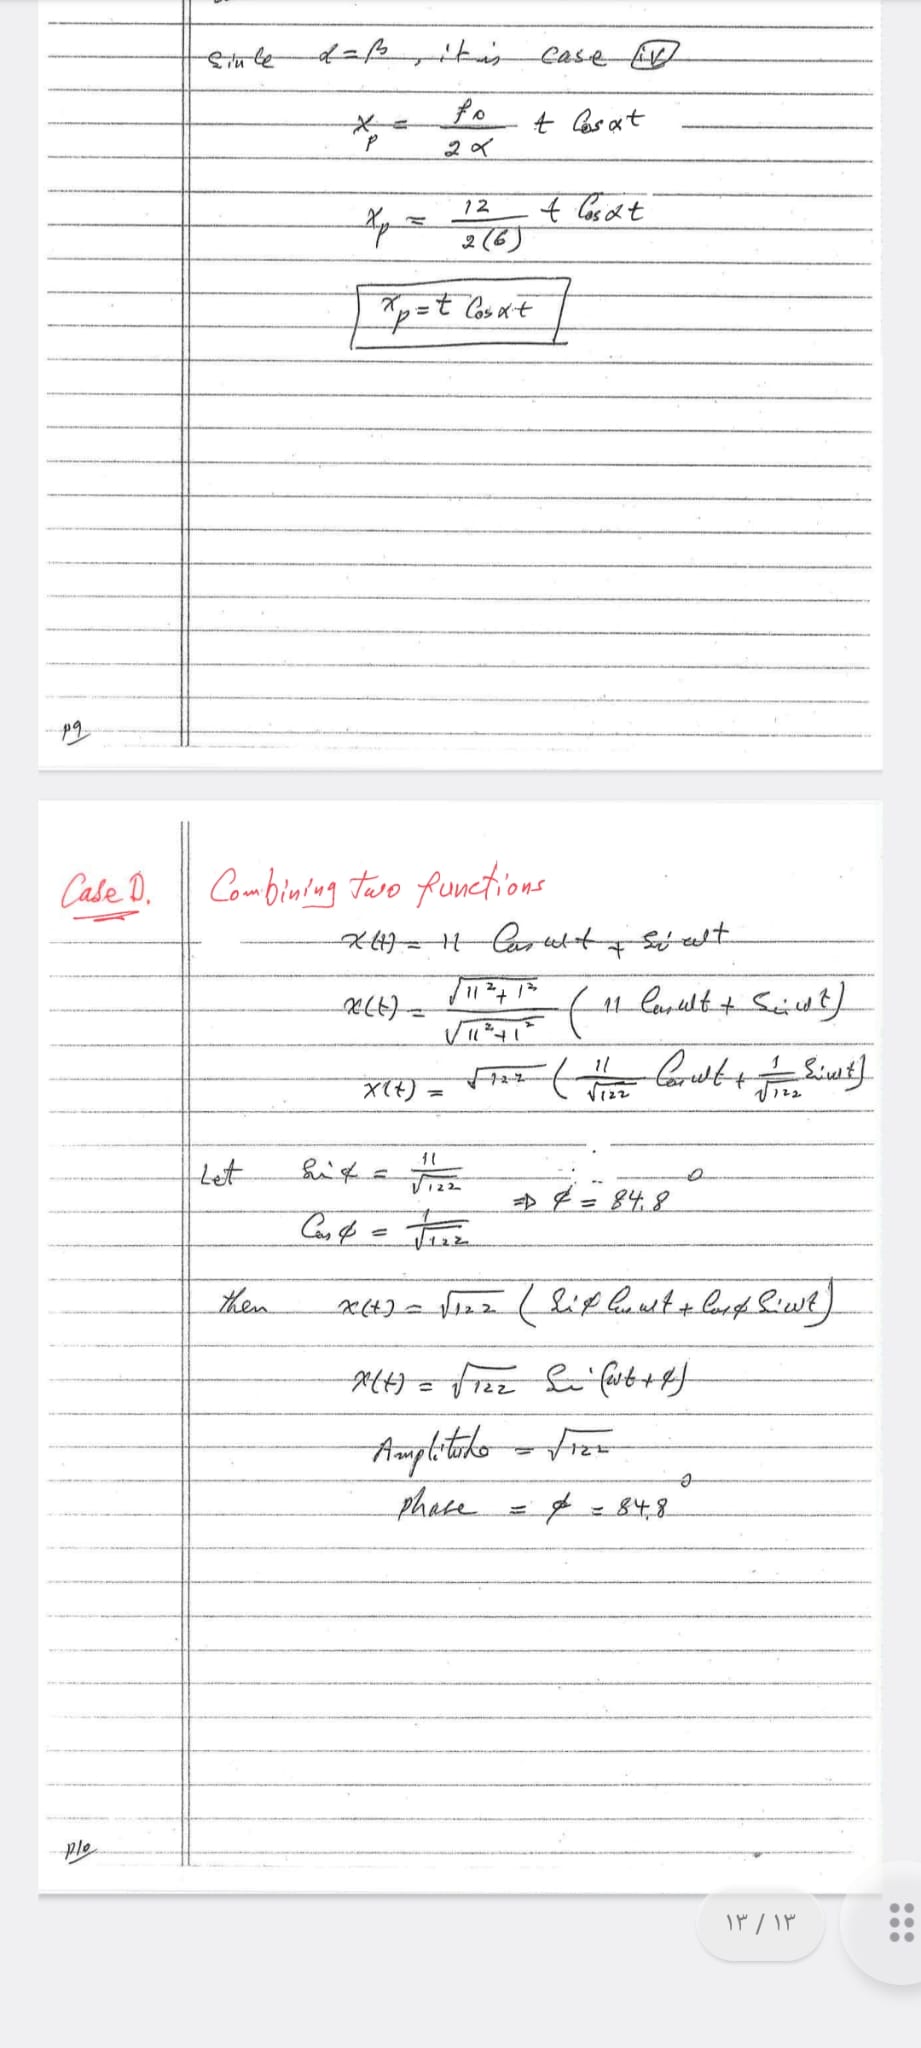 Since α = β, it is case (iv)
x_p = f₀ / 2α t Cos αt
x_p = 12 / 2(6) t Cos αt
x_p = t Cos αt
p9
Case D. Combining two functions
x(t) = 11 Cos ωt + Sin ωt
x(t) = √11²+1² / √11²+1² ( 11 Cos ωt + Sin ωt)
x(t) = √122 ( 11/√122 Cos ωt + 1/√122 Sin ωt)
Let Sin φ = 11/√122
⇒ φ = 84.8°
Cos φ = 1/√122
then x(t) = √122 ( Sin φ Cos ωt + Cos φ Sin ωt)
x(t) = √122 Sin (ωt + φ)
Amplitude = √122
phase = φ = 84.8°
p10
١٣ / ١٣